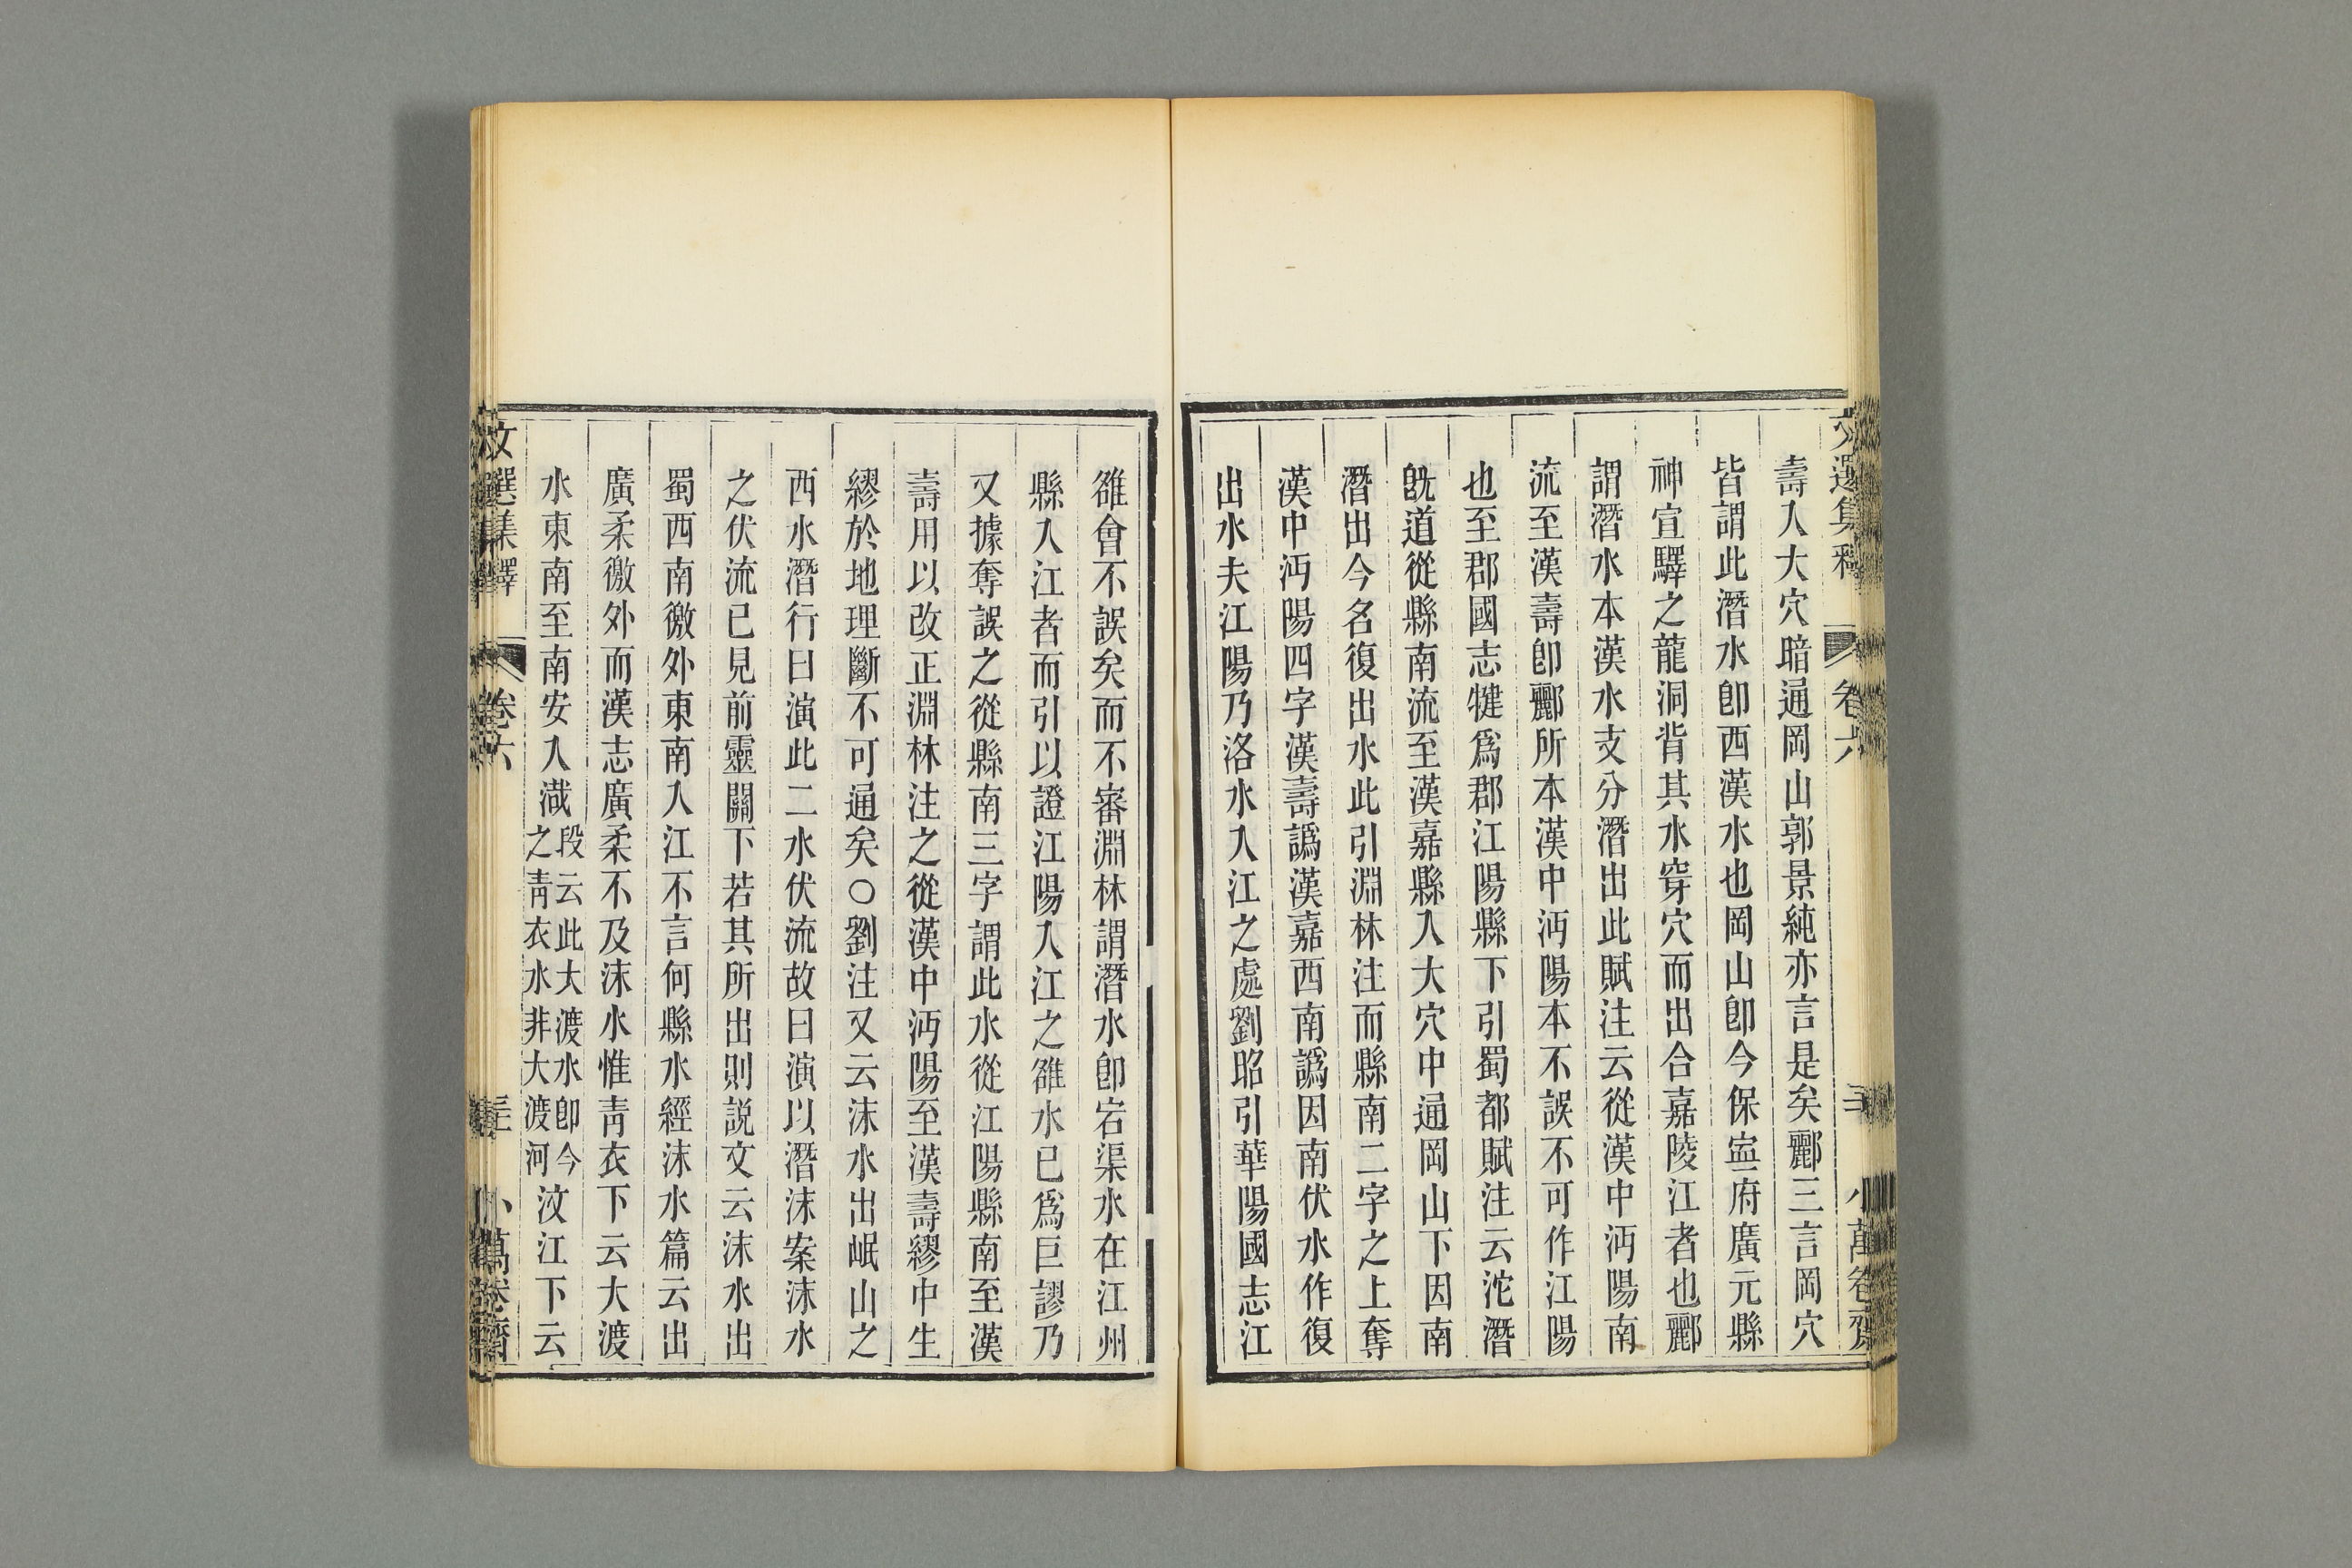 壽入大穴暗通岡山郭景純亦言是矣酈三言岡穴
皆謂此潛水卽西漢水也岡山卽今保寍府廣元縣
神宣驛之龍洞背其水穿穴而出合嘉陵江者也酈
謂潛水本漢水支分潛出此賦注云從漢中沔陽南
流至漢壽卽酈所本漢中沔陽本不誤不可作江陽
也至郡國志犍爲郡江陽縣下引蜀都賦注云沱潛
旣道從縣南流至漢嘉縣入大穴中通岡山下因南
潛出今名復出水此引淵林注而縣南二字之上奪
漢中沔陽四字漢壽譌漢嘉西南譌因南伏水作復
出水夫江陽乃洛水入江之處劉昭引華陽國志江
文選集釋 卷六 小萬卷齋
雒會不誤矣而不審淵林謂潛水卽宕渠水在江州
縣入江者而引以證江陽入江之雒水已爲巨謬乃
又據奪誤之從縣南三字謂此水從江陽縣南至漢
壽用以改正淵林注之從漢中沔陽至漢壽繆中生
繆於地理斷不可通矣○劉注又云沫水出岷山之
西水潛行曰演此二水伏流故曰演以潛沫案沫水
之伏流已見前靈關下若其所出則説文云沫水出
蜀西南徼外東南入江不言何縣水經沫水篇云出
廣柔徼外而漢志廣柔不及沫水惟靑衣下云大渡
水東南至南安入渽段云此大渡水卽今之靑衣水非大渡河汶江下云
文選集釋 卷六 小萬卷齋